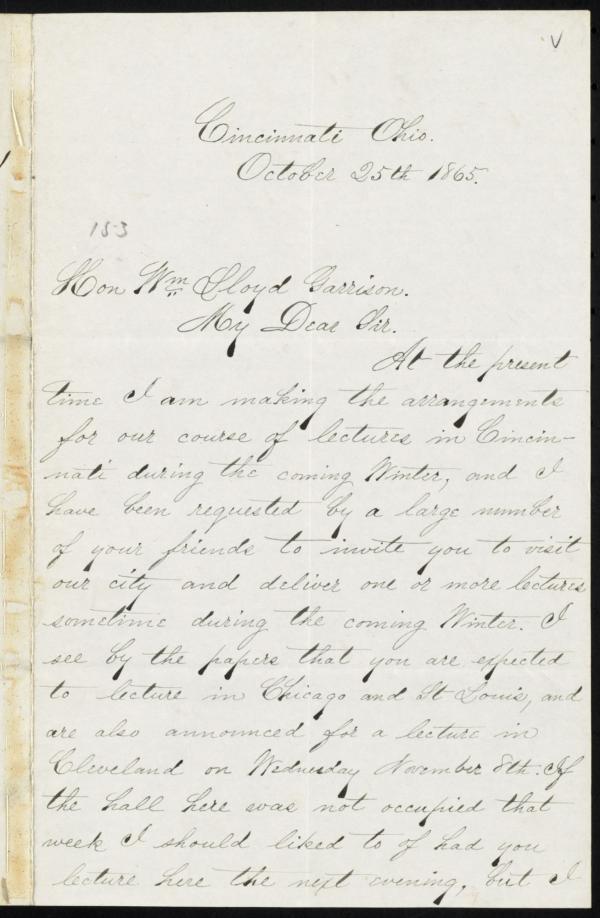 V
Cincinnati Ohio.
October 25th 1865.
153
Hon Wm Lloyd Garrison.
My Dear Sir.
At the present
time I am making the arrangements
for our course of lectures in Cincin-
nati during the coming Winter, and I
have been requested by a large number
of your friends to invite you to visit
our city and deliver one or more lectures
sometime during the coming Winter. I
see by the papers that you are expected
to lecture in Chicago and St Louis, and
are also announced for a lecture in
Cleveland on Wednesday November 8th. If
the hall here was not occupied that
week I should liked to of had you
lecture here the next evening, but I